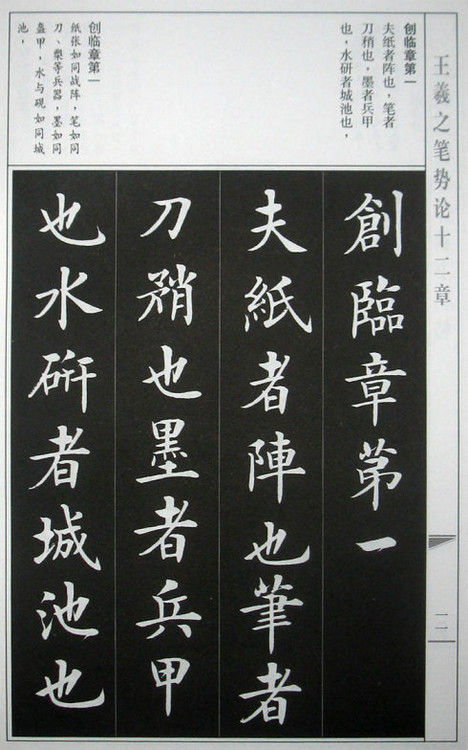 王羲之笔势论十二章
创临章第一
夫纸者阵也，笔者
刀稍也，墨者兵甲
也，水研者城池也，
创临章第一
纸张如同战阵，笔如同
刀、槊等兵器，墨如同
盔甲，水与砚如同城
池，
創臨章第一
夫紙者陣也筆者
刀矟也墨者兵甲
也水研者城池也
二